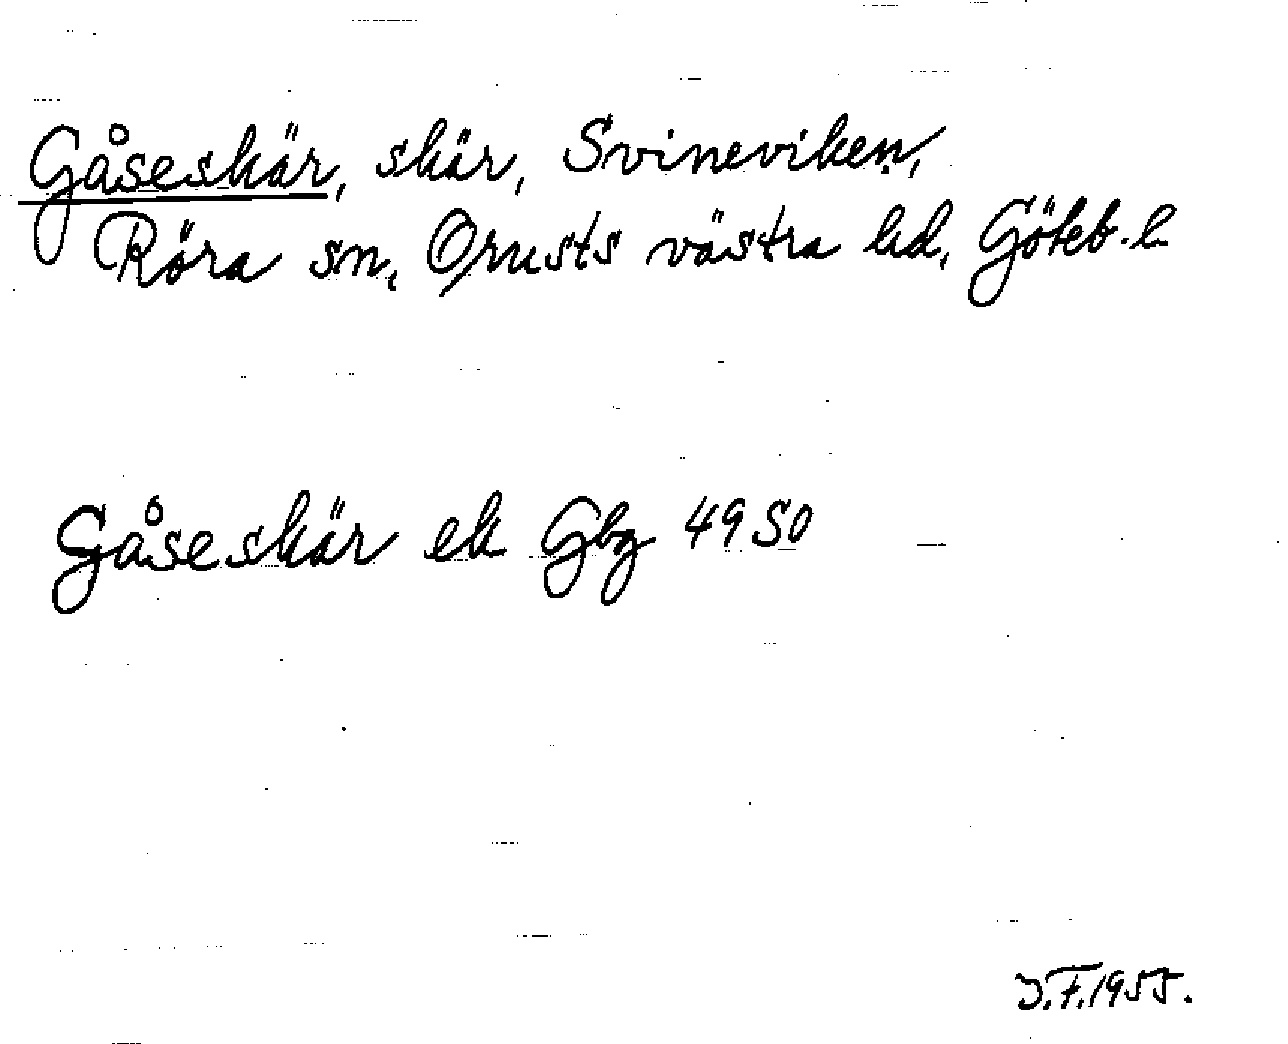 Gåseskär, skär, Svineviken,
Röra sn, Orusts västra hd, Göteb. l
Gåseskär ek Gbg 4950
J.F. 1955.